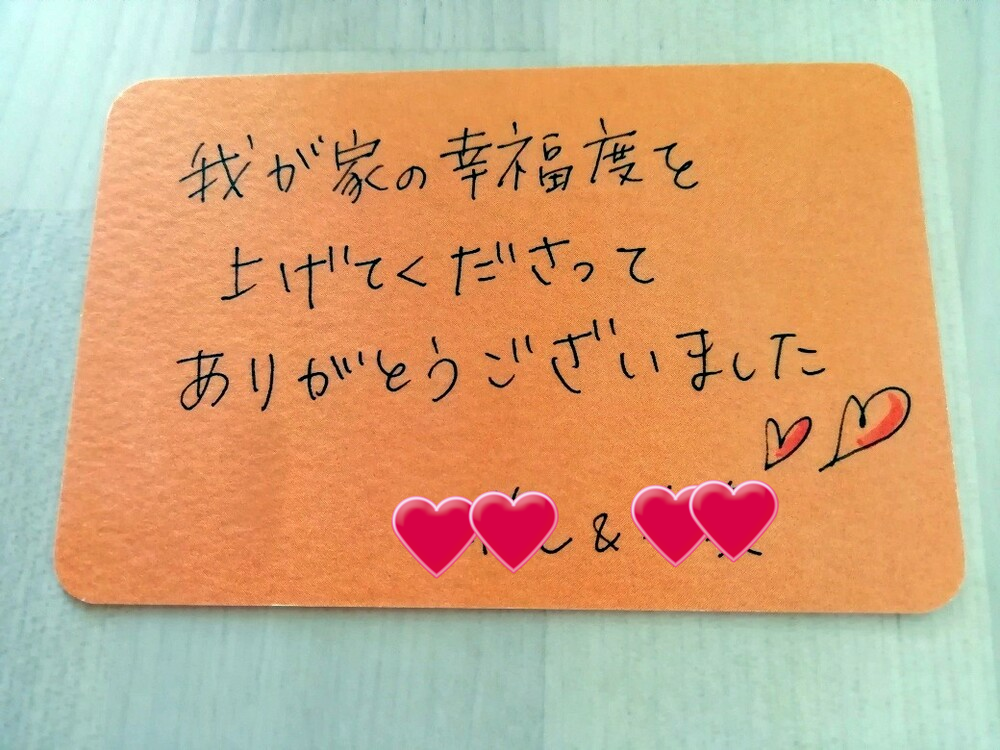 我が家の幸福度を
上げてくださって
ありがとうございました
&